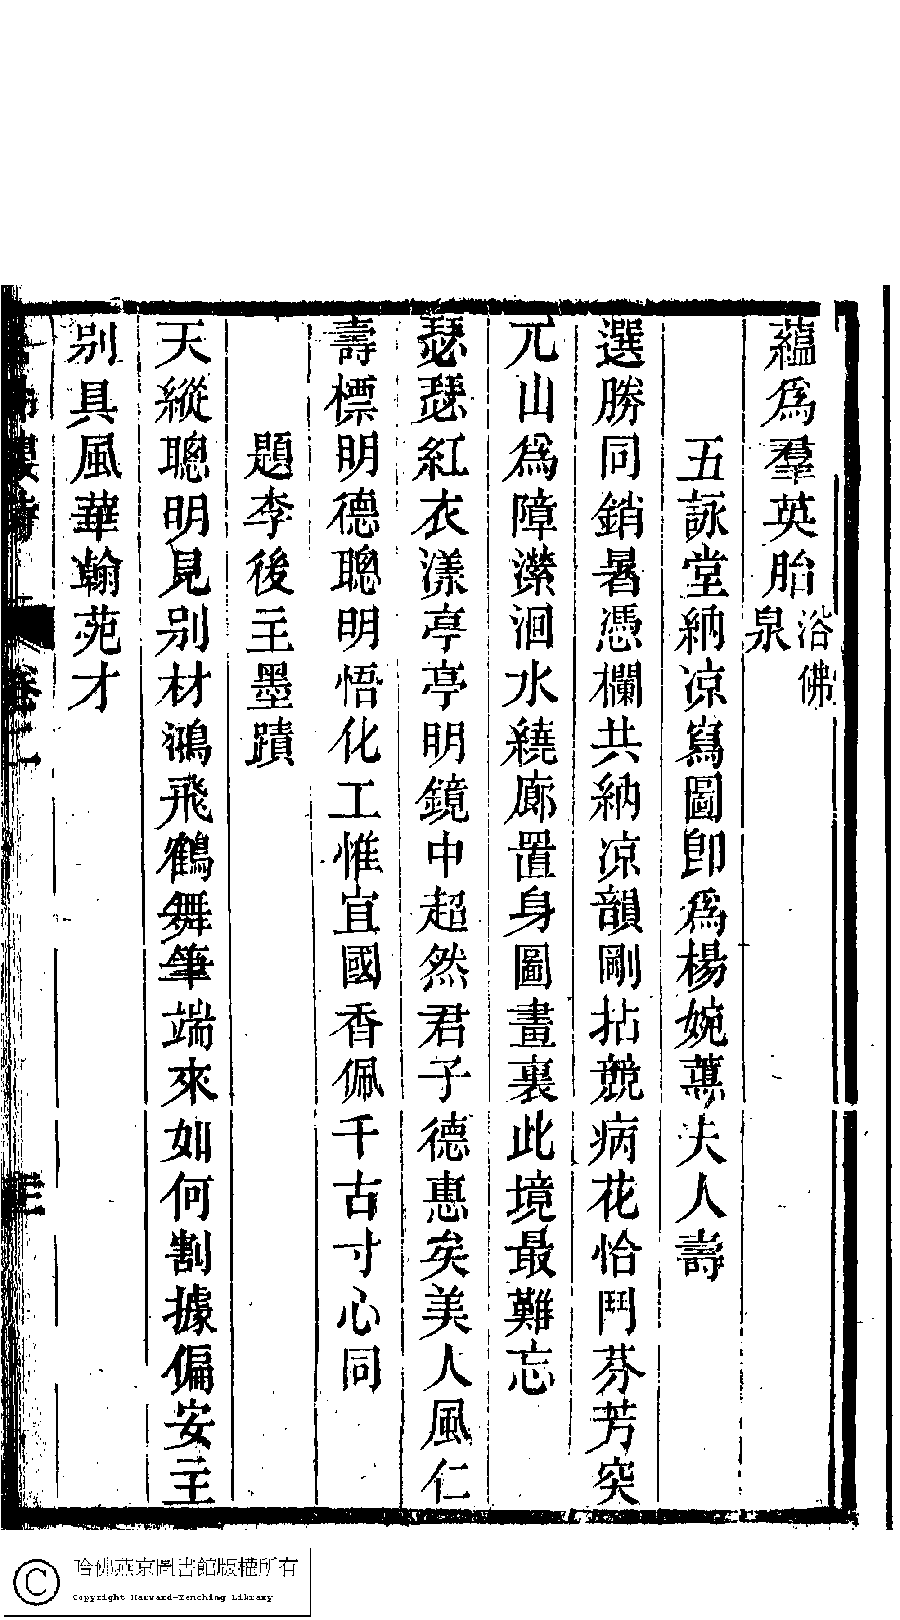 蘊爲羣英胎浴佛泉
五詠堂納凉寫圖卽爲楊婉蕙夫人壽
選勝同銷暑憑欄共納凉韻剛拈競病花恰鬥芬芳突
兀山爲障瀠洄水繞廊置身圖畫裏此境最難忘
瑟瑟紅衣漾亭亭明鏡中超然君子德惠矣美人風仁
壽標明德聰明悟化工惟宜國香佩千古寸心同
題李後主墨蹟
天縱聰明見别材鴻飛鶴舞筆端來如何割據偏安主
别具風華翰苑才
卷二
三
哈佛燕京圖書館版權所有
Copyright Harvard-Yenching Library